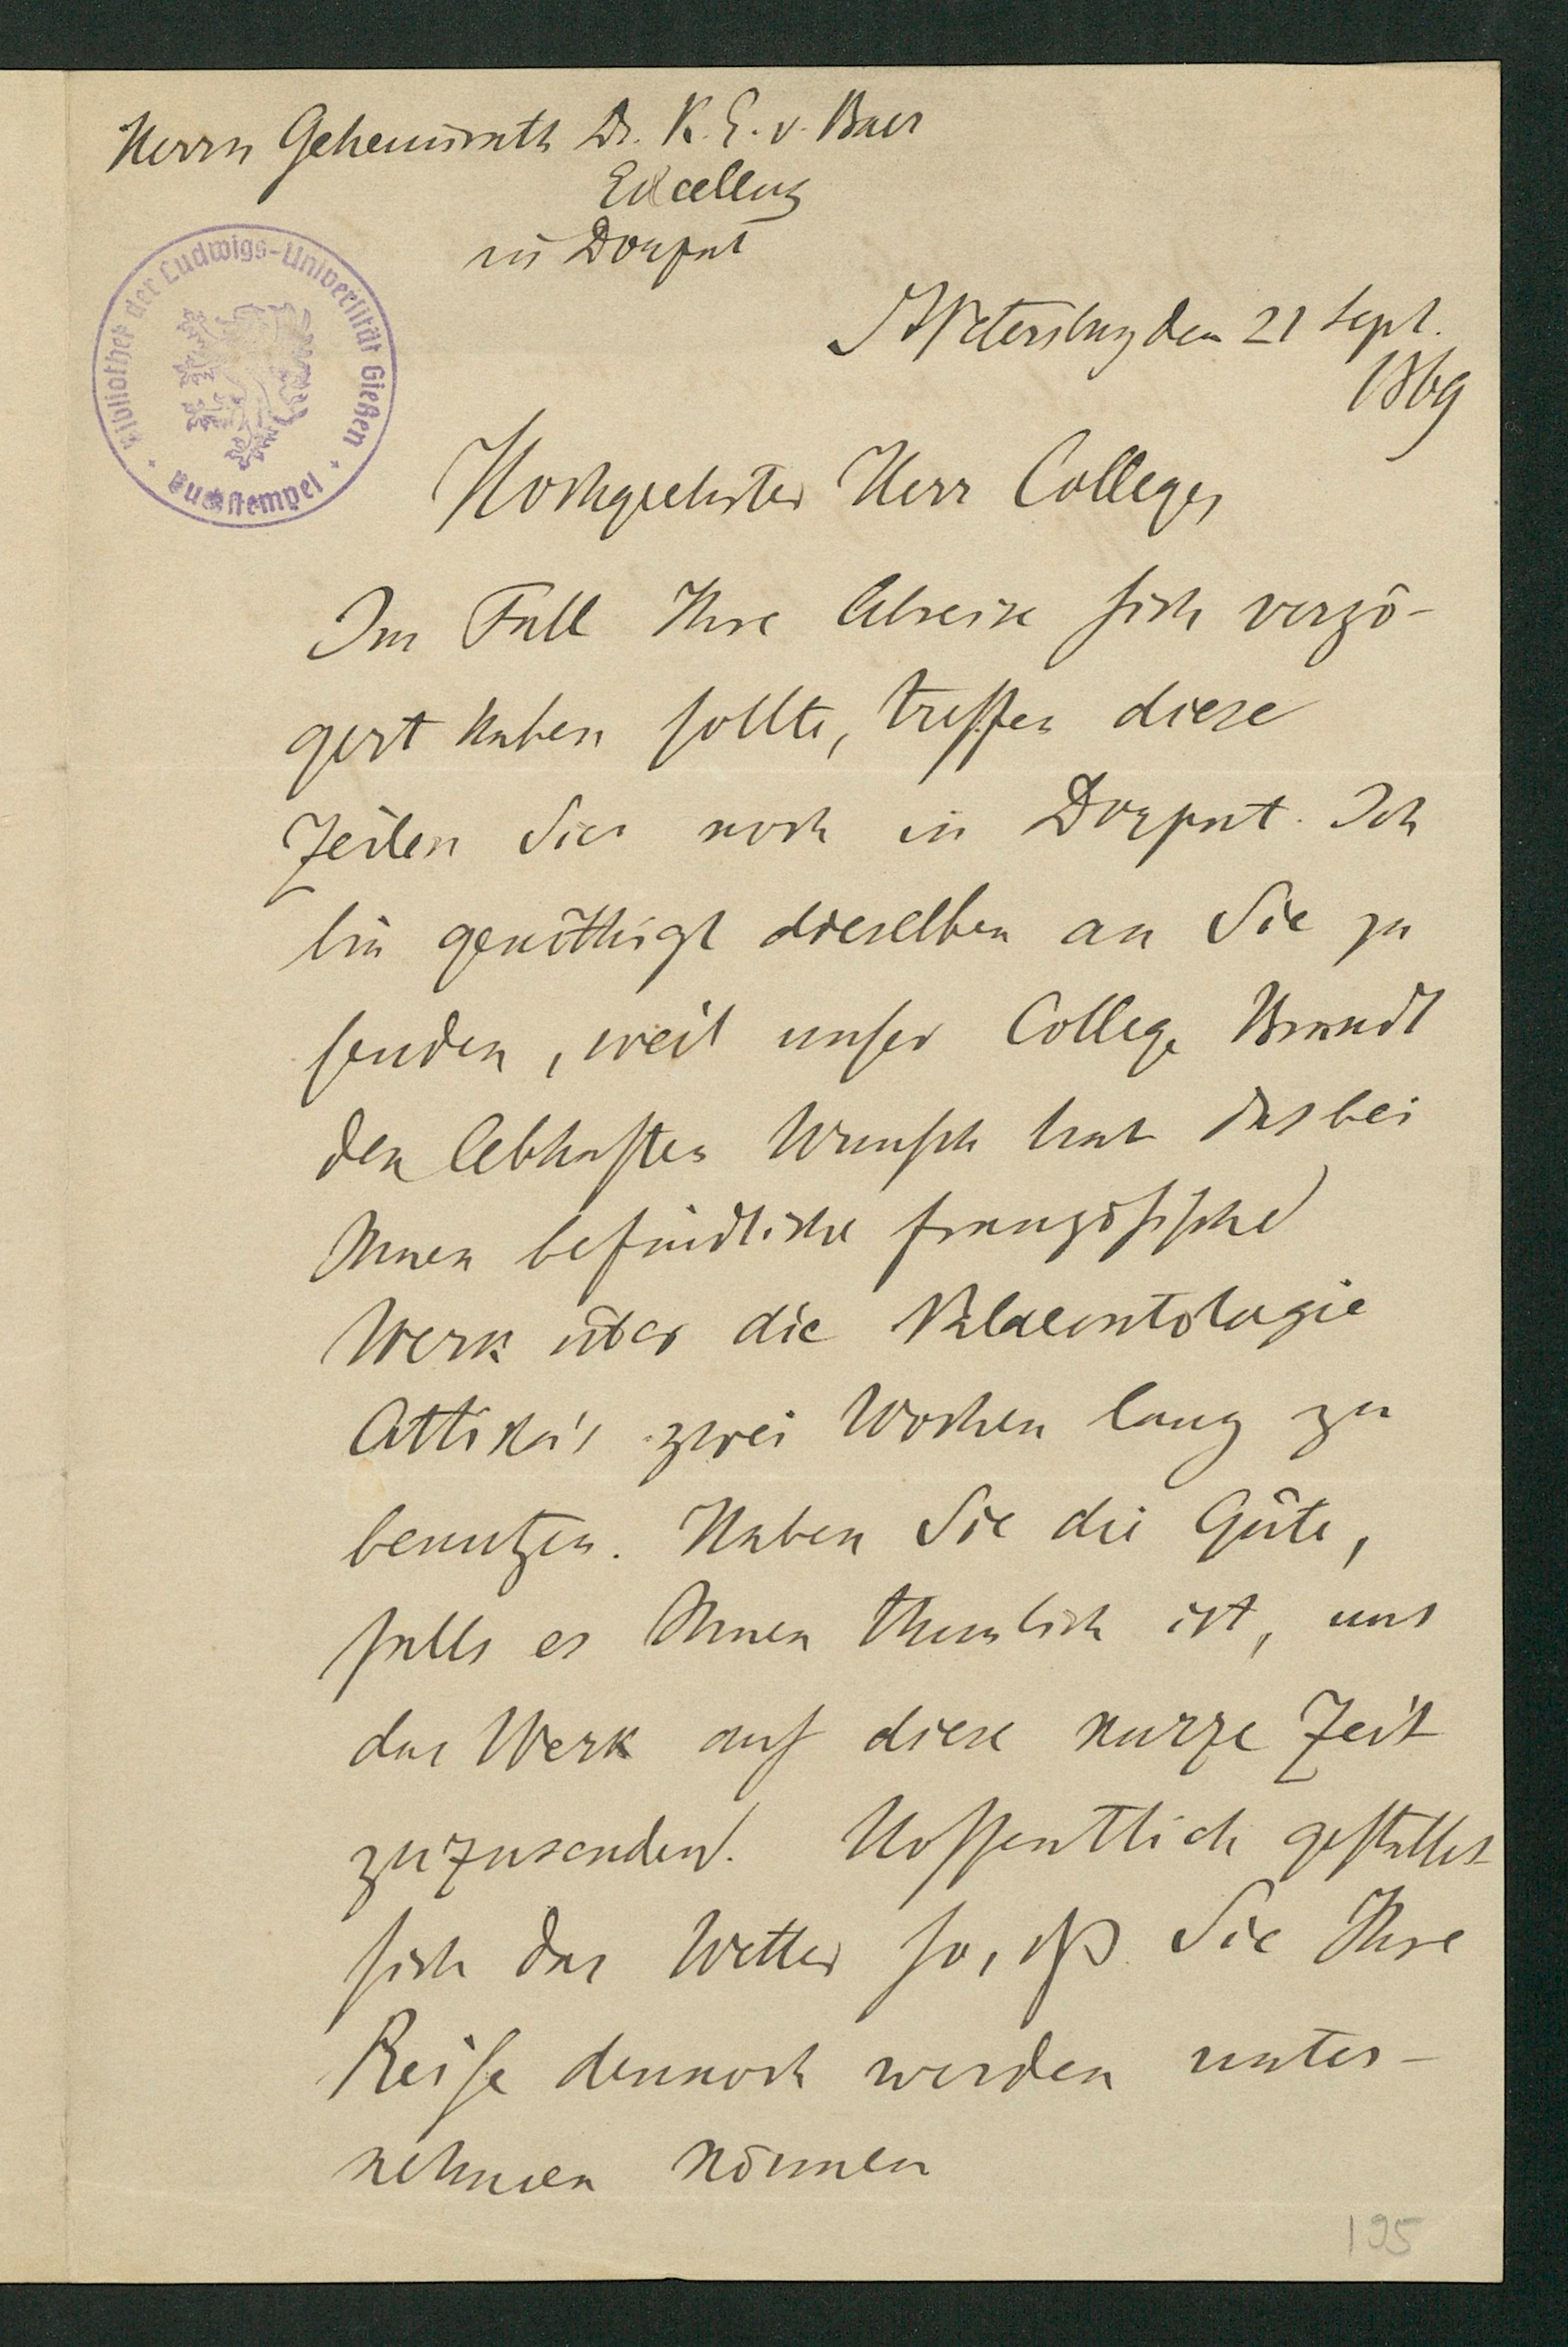 Herrn Geheimrath Dr. K. E. v. Baer
Excellenz
in Dorpat
Bibliothek der Ludwigs-Universität Gießen
Buchstempel
St Petersburg den 21 Sept.
1869
Hochgeehrter Herr College,
Im Fall Ihre Abreise sich verzö-
gert haben sollte, treffen diese
Zeilen Sie noch in Dorpat. Ich
bin genöthigt dieselben an Sie zu
senden, weil unser College Brandt
den lebhaften Wunsch hat das bei
Ihnen befindliche französische
Werk über die Palaeontologie
Attika's zwei Wochen lang zu
benutzen. Haben Sie die Güte,
falls es Ihnen thunlich ist, uns
das Werk auf diese kurze Zeit
zuzusenden. Hoffentlich gestaltet
sich das Wetter so, dß Sie Ihre
Reise dennoch werden unter-
nehmen können
195